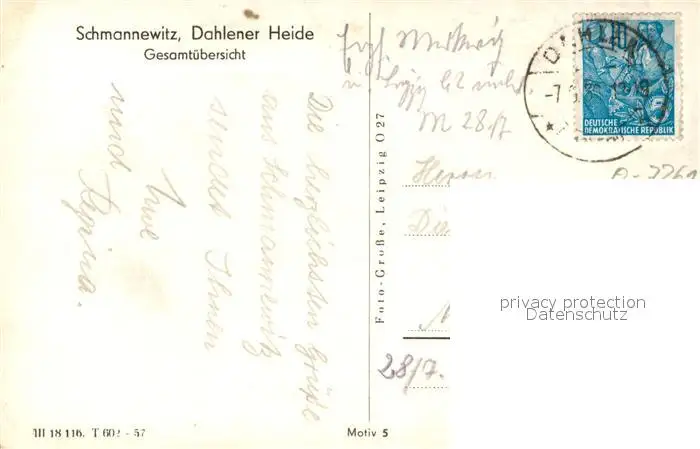 Schmannewitz, Dahlener Heide
Gesamtübersicht
Die herzlichsten Grüße
aus Schmannewitz
sendet Ihnen
Uwe
und Regina.
Foto-Große, Leipzig O 27
III 18 116. T 602 - 57
Motiv 5
M 28/7
DEUTSCHE
DEMOKRATISCHE REPUBLIK
10
Herrn
28/7.
privacy protection
Datenschutz